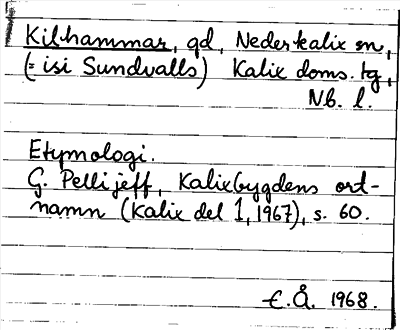 Kilhammar, gd, Nederkalix sn,
(= isi Sundvalls) Kalix doms. tg,
Nb. l.
Etymologi.
G. Pellijeff, Kalixbygdens ort-
namn (Kalix del 1, 1967), s. 60.
E.Å. 1968.